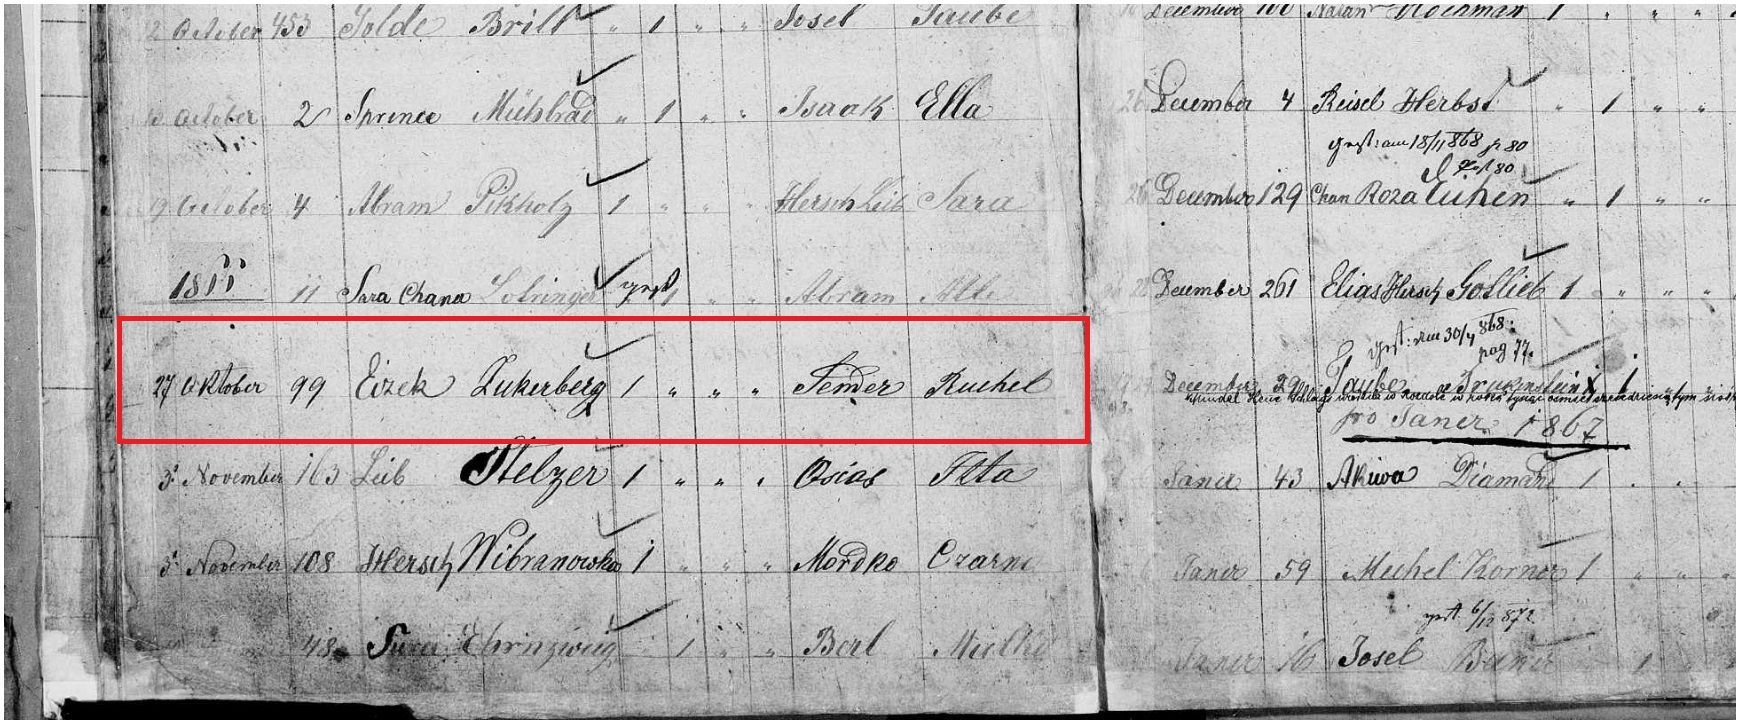 October 453 Jolde Brill " 1 " " Josel Taube
October 2 Sprince Mühlrad " 1 " " Isaak Ella
19 October 4 Abram Pikholz 1 " " " Hersch Leib Sara
11 Sara Chana Lotringer gest 1 " " Abram
27 Oktober 99 Eizek Zukerberg 1 " " " Sender Ruchel
5 November 163 Leib Stelzer 1 " " " Osias Itta
5 November 108 Hersch Wibranowska 1 " " " Mordko Czarne
48 Sura Ehrinzweig 1 " " Berl Malke
December Natan Hochman 1 " " "
26 December 4 Reisel Herbst " 1 " "
gest: am 18/11 868 p 80
80
December 129 Chan Roza Eichen " 1 " "
December 261 Elias Hersch Gottlieb 1 " " "
gest: am 868
pag 77.
December 29 Taube 1
pro Janer 1867
Janer 43 Akiwa Diamand 1
Janer 59 Mechel Korner 1 " " "
gest 6/12 872
Janer 16 Josel 1